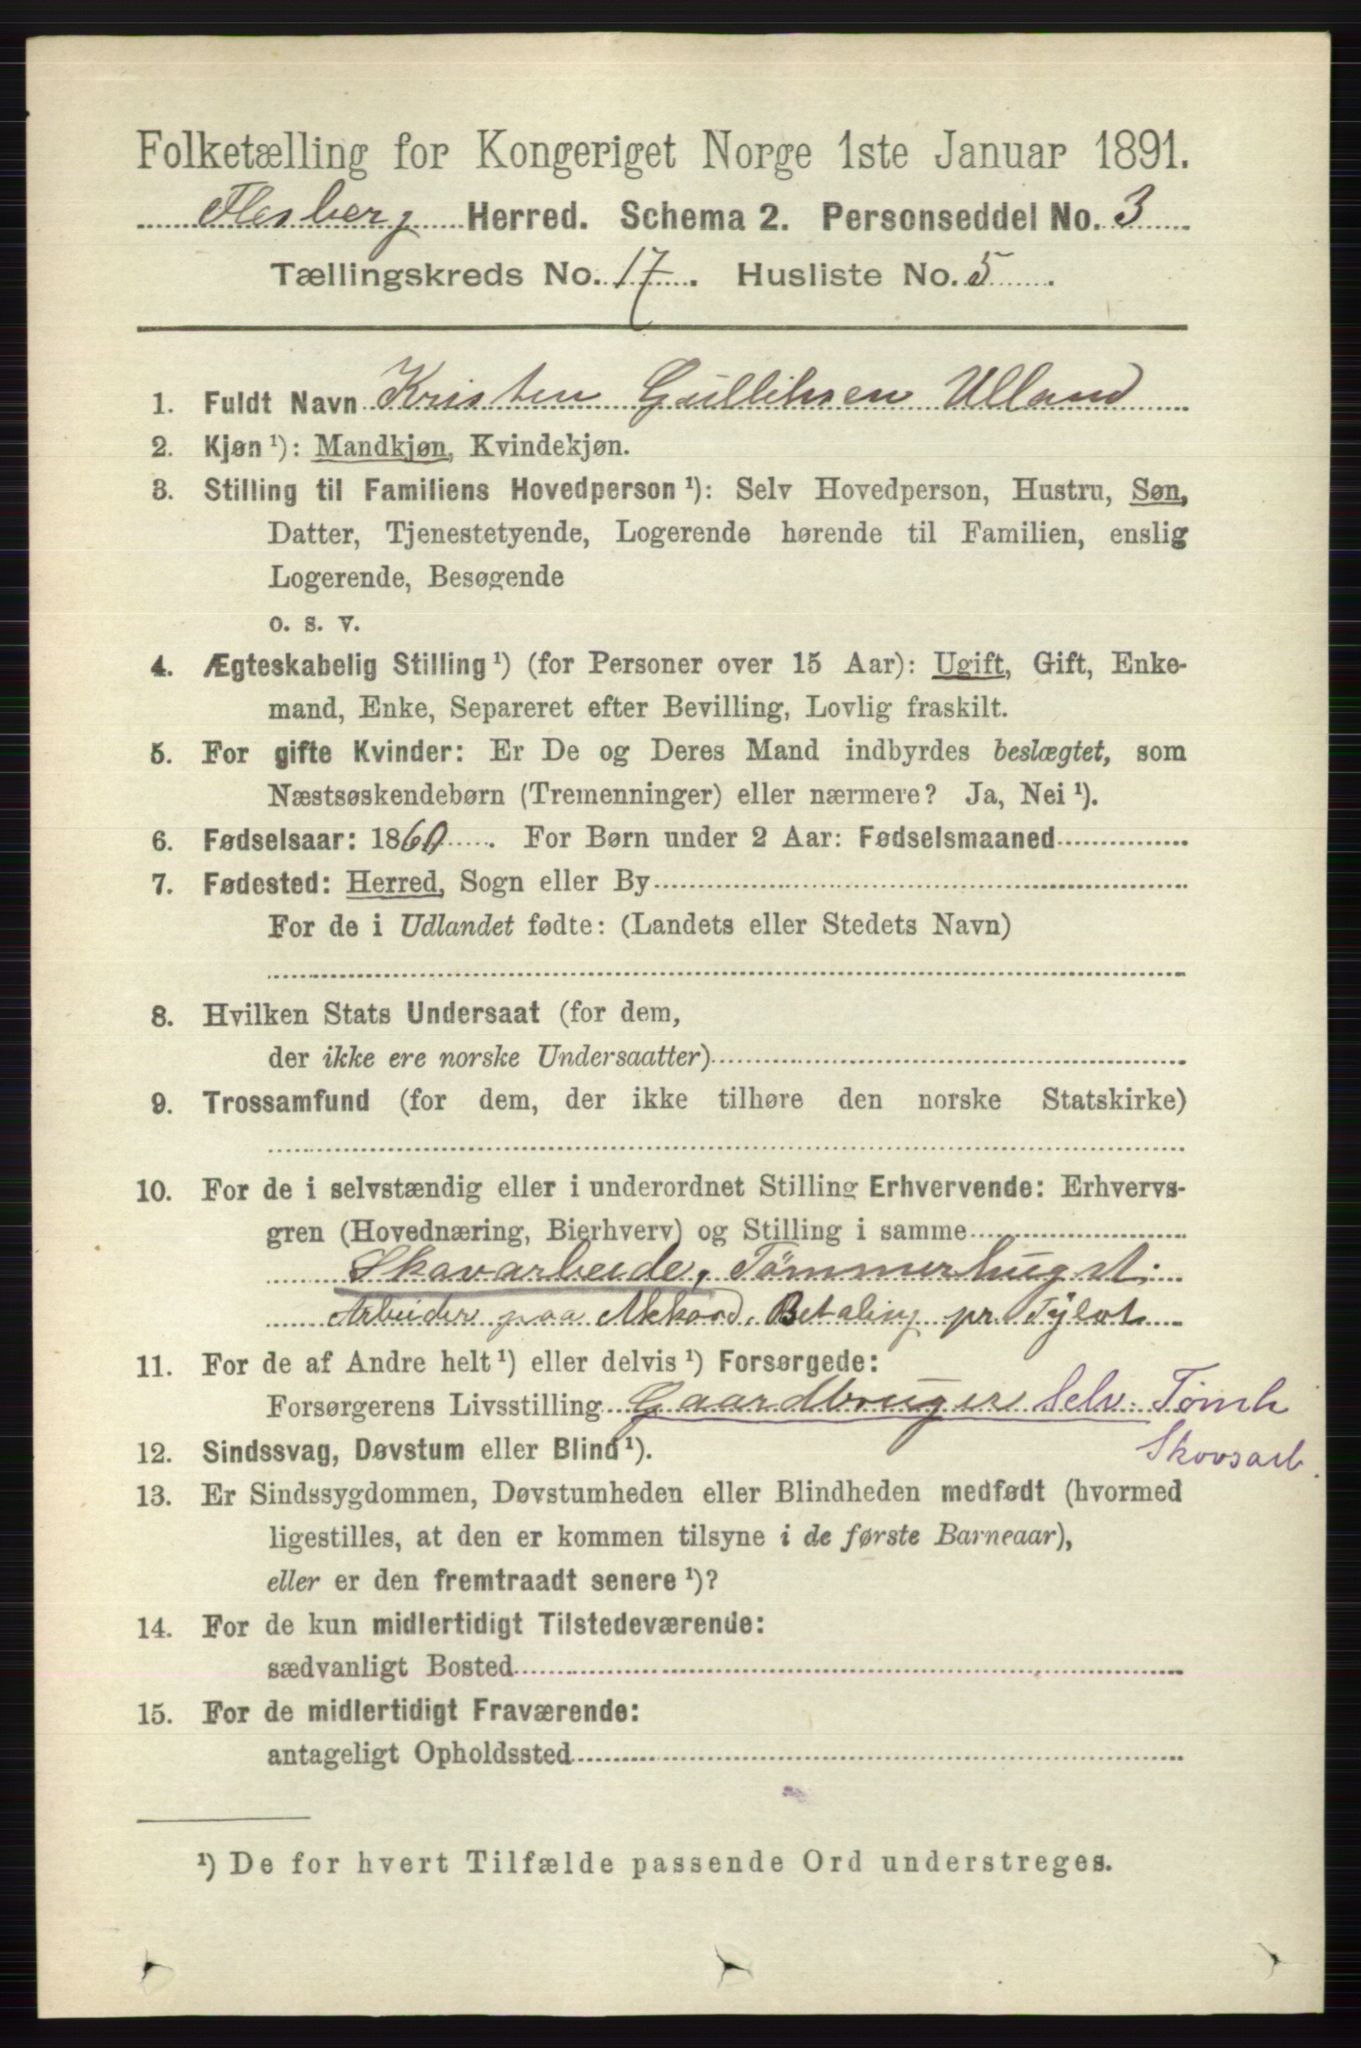 Folketælling for Kongeriget Norge 1ste Januar 1891.
Flesberg Herred. Schema 2. Personseddel No. 3
Tællingskreds No. 17. Husliste No. 5
1. Fuldt Navn Kristen Gulliksen Ulland
2. Kjøn ¹): Mandkjøn, Kvindekjøn.
3. Stilling til Familiens Hovedperson ¹): Selv Hovedperson, Hustru, Søn,
Datter, Tjenestetyende, Logerende hørende til Familien, enslig
Logerende, Besøgende
o. s. v.
4. Ægteskabelig Stilling ¹) (for Personer over 15 Aar): Ugift, Gift, Enke-
mand, Enke, Separeret efter Bevilling, Lovlig fraskilt.
5. For gifte Kvinder: Er De og Deres Mand indbyrdes beslægtet, som
Næstsøskendebørn (Tremenninger) eller nærmere? Ja, Nei ¹).
6. Fødselsaar: 1860. For Børn under 2 Aar: Fødselsmaaned
7. Fødested: Herred, Sogn eller By
For de i Udlandet fødte: (Landets eller Stedets Navn)
8. Hvilken Stats Undersaat (for dem,
der ikke ere norske Undersaatter)
9. Trossamfund (for dem, der ikke tilhøre den norske Statskirke)
10. For de i selvstændig eller i underordnet Stilling Erhvervende: Erhvervs-
gren (Hovednæring, Bierhverv) og Stilling i samme
Skovarbeide, Tømmerhugst.
Arbeider paa Akkord. Betaling pr. Tylvt
11. For de af Andre helt ¹) eller delvis ¹) Forsørgede:
Forsørgerens Livsstilling Gaardbruger Selv. Tømh
Skovsarb.
12. Sindssvag, Døvstum eller Blind ¹).
13. Er Sindssygdommen, Døvstumheden eller Blindheden medfødt (hvormed
ligestilles, at den er kommen tilsyne i de første Barneaar),
eller er den fremtraadt senere ¹)?
14. For de kun midlertidigt Tilstedeværende:
sædvanligt Bosted
15. For de midlertidigt Fraværende:
antageligt Opholdssted
¹) De for hvert Tilfælde passende Ord understreges.